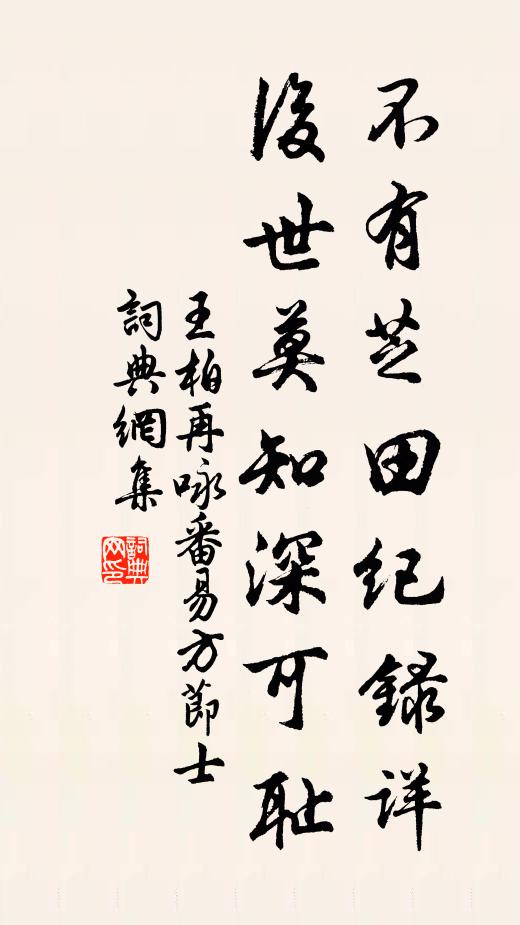 不有芝田紀録详
後世莫知深可耻
王柏再咏番易方節士
詞典網集
詞典网印